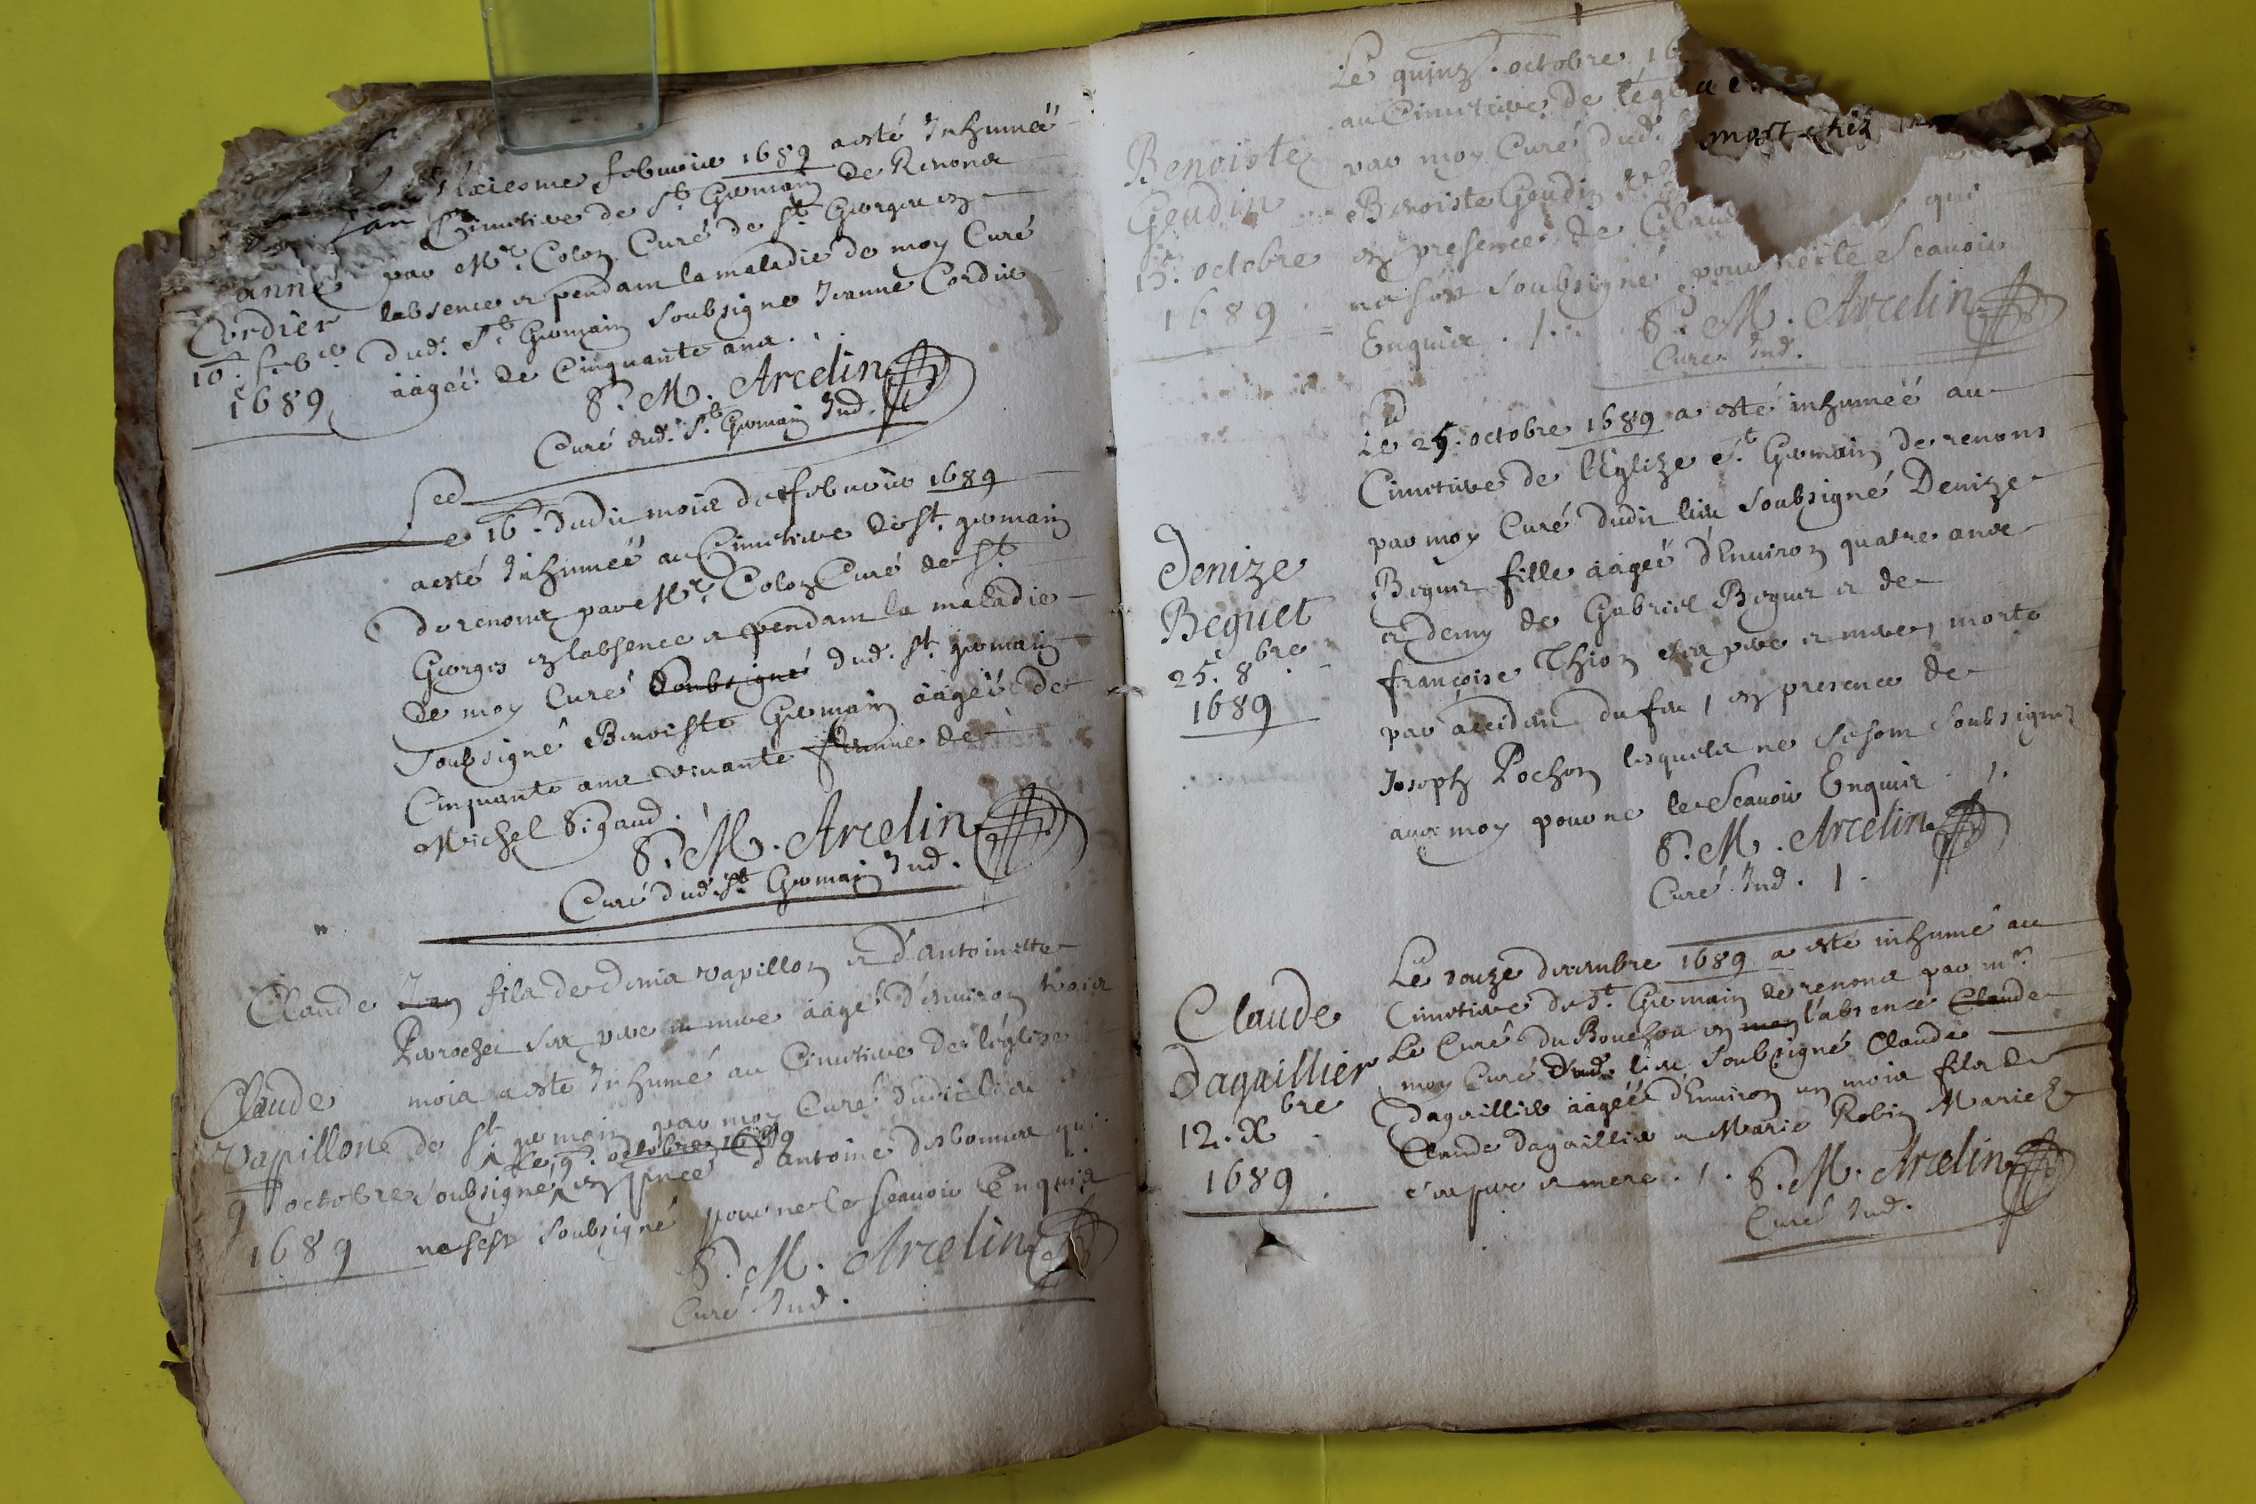 febvrier 1689 a esté Inhuméé
Cimetiere de St. Germain de Renons
anne par Mr. Colon Curé de St. Georges en
Cordier labsence et pendant la maladie de moy Curé
16. feb.er dud. St. Germain soubsigné Jeanne Cordier
1689 ââgéé de Cinquante ans.
P. M. Arcelin
Curé dud. St. Germain Ind.
Le 16. dudit mois de febvrier 1689
a esté Inhuméé au Cimetiere de St. germain
de renons par Mr. Colon Curé de St.
Georges en labsence et pendant la maladie
de moy Curé soubsigné dud. St. germain
soubsigné Benoiste Germain ââgéé de
Cinquante ans vivante femme de
Michel Sigaud.
P. M. Arcelin
Curé dud. St. Germain Ind.
Claude fils de denis vapillon et d'antoinette
Perrochet ses pere et mere ââgé d'environ trois
Claude mois a esté Inhumé au Cimetiere de léglize
Vapillon de St. germain par moy Curé dudit lieu
le 9. octobre 1689
9 octobre soubsigné en pnce d'antoine desbonnes qui
1689 ne sest soubsigné pour ne le scavoir Enquis
P. M. Arcelin
Curé Ind.
Le quinz. octobre 16
au Cimetiere de lég
mort chez
Benoiste par moy Curé dud.
Geudin Benoiste Geudin
15. octobre en presence de Claud qui
1689 ne sest soubsigné pour ne le scavoir
Enquis.
P. M. Arcelin
Curé Ind.
Le 25. octobre 1689 a esté inhuméé au
Cimetiere de l'Eglize St. Germain de renons
par moy Curé dudit lieu soubsigné Denize
Denize Beguet fille ââgéé d'Environ quatre ans
Beguet et demy de Gabriel Beguet et de
25. 8bre françoise Thion ses pere et mere, morte
1689 par accident du feu, en presence de
Joseph Pochon lesquels ne se sont soubsignez
avec moy pour ne le scavoir Enquis.
P. M. Arcelin
Curé Ind.
Le douze decembre 1689 a esté inhumé au
Claude Cimetiere de St. Germain de renons par mr.
Le Curé du Bouchou en mon l'absence Claude
Dagaillier moy Curé dud. lieu soubsigné Claude
12. Xbre Dagaillier ââgéé d'Environ un mois fils de
1689 Claude dagaillier et Marie Robin Mariez
ses pere et mere.
P. M. Arcelin
Curé Ind.